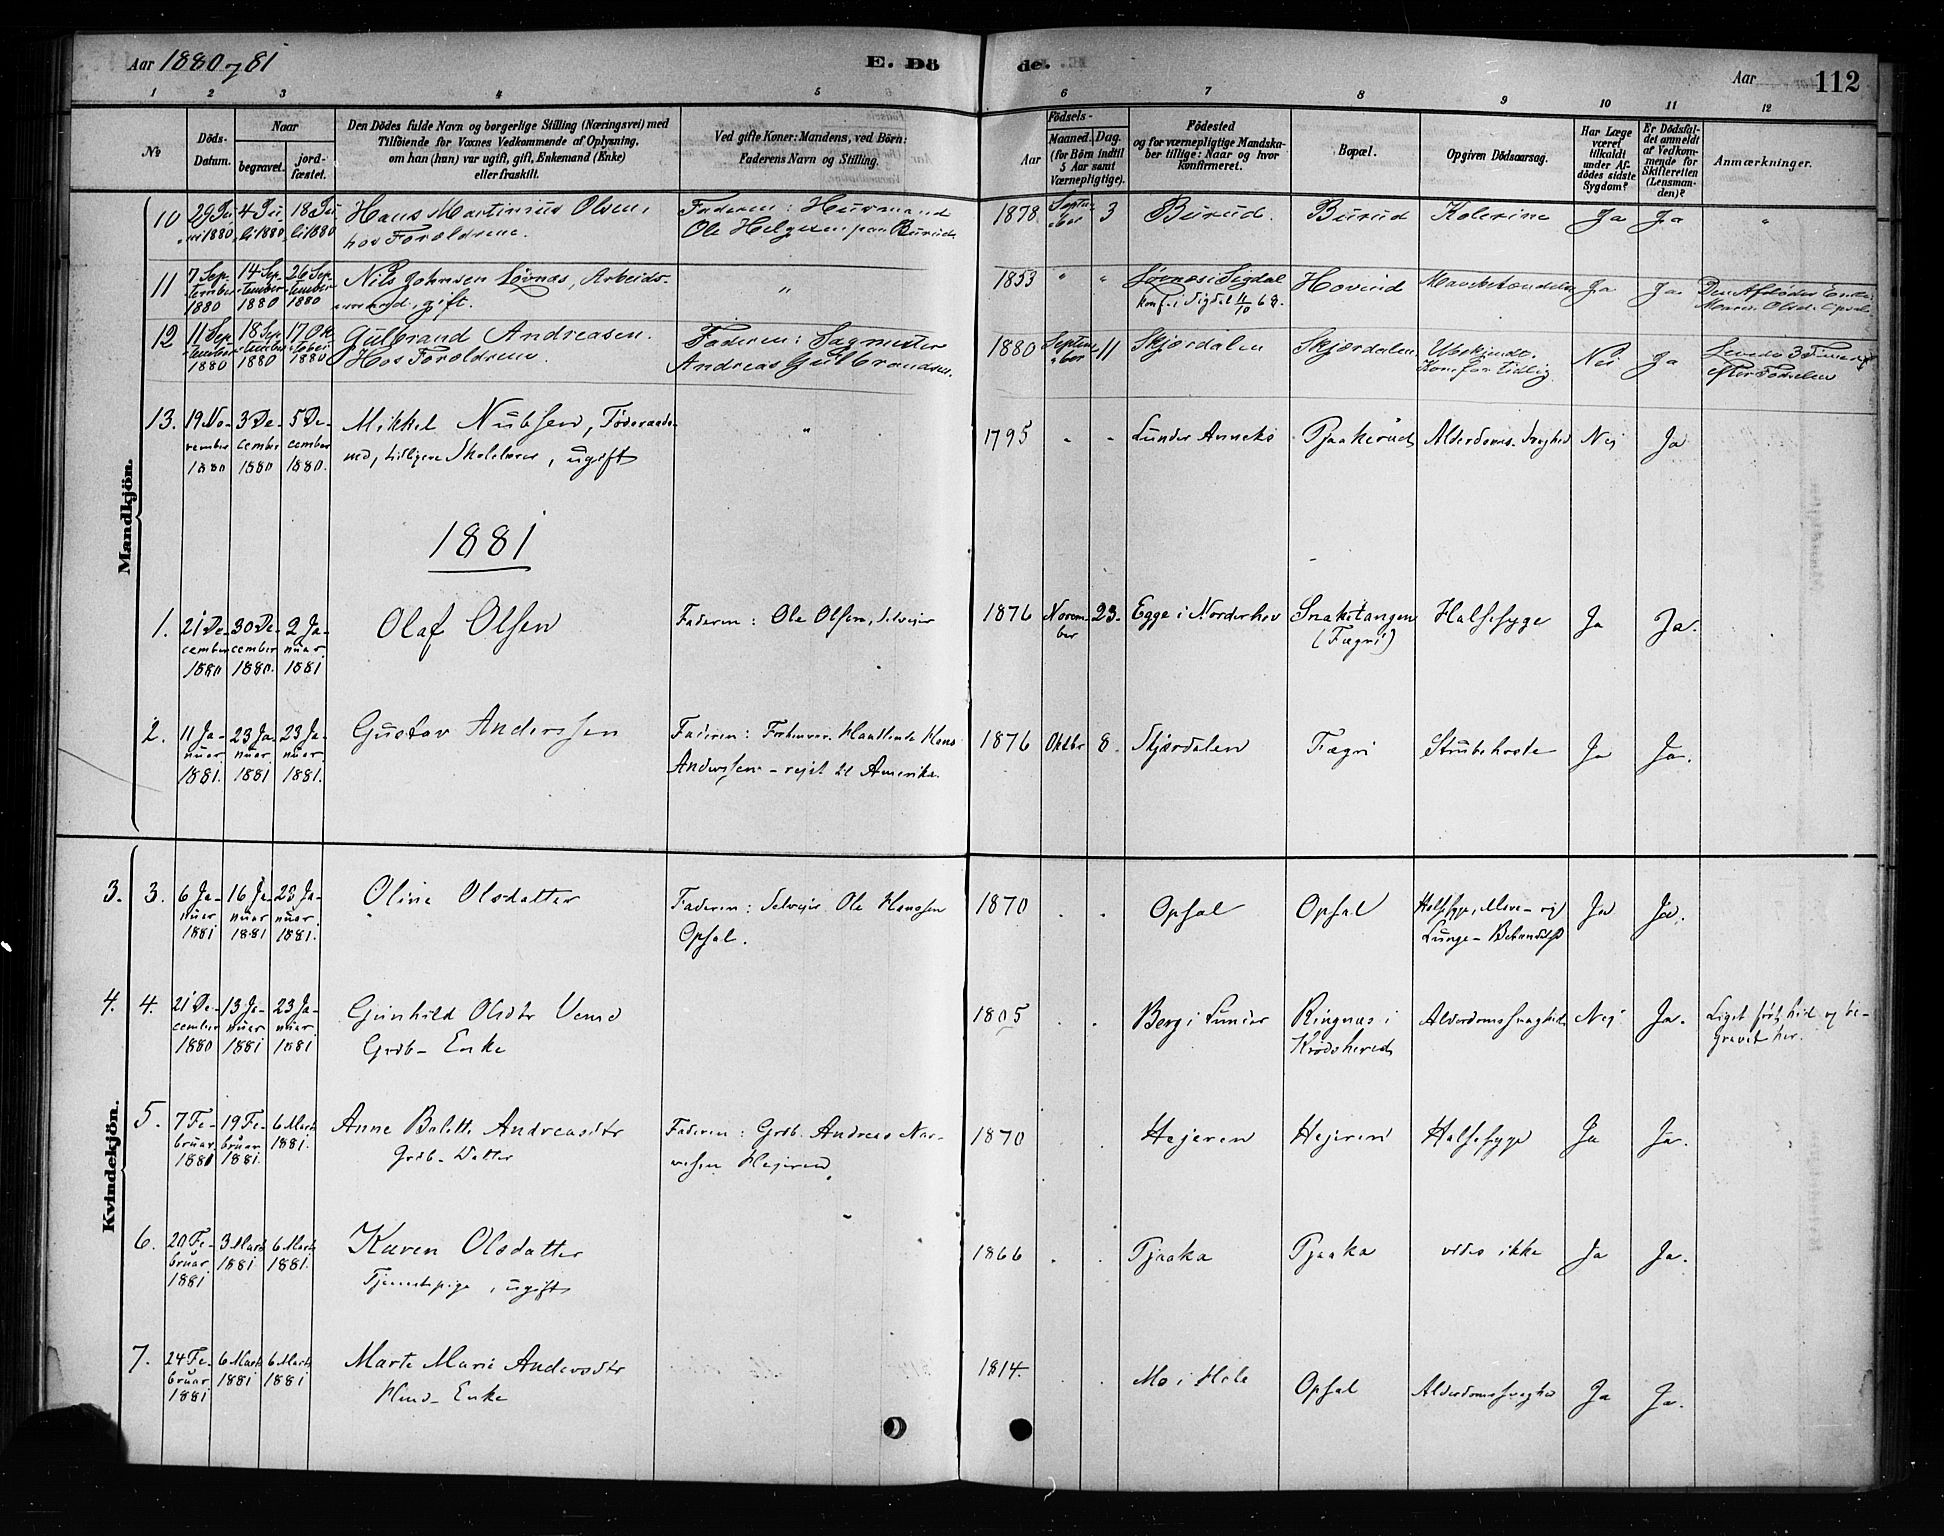 Aar 1880 og 81
E. Döde.
Aar
112
1 2 3 4 5 6 7 8 9 10 11 12
No
Döds-Datum.
Naar
begravet.
jordfæstet.
Den Dödes fulde Navn og borgerlige Stilling (Næringsvei) med
Tilföiende for Voxnes Vedkommende af Oplysning,
om han (hun) var ugift, gift, Enkemand (Enke)
eller fraskilt.
Ved gifte Koner: Mandens, ved Börn:
Faderens Navn og Stilling.
Födsels-
Aar
Maaned. Dag.
(for Börn indtil
5 Aar samt
Værnepligtige).
Födested
og for værnepligtige Mandskaber tillige: Naar og hvor
konfirmeret.
Bopæl.
Opgiven Dödsaarsag.
Har Læge
været
tilkaldt
under Afdödes sidste
Sygdom?
Er Dödsfaldet anmeldt
af Vedkommende for
Skifteretten
(Lensmanden)?
Anmærkninger.
Mandkjön.
10 29 Juni 1880 4 Juli 1880 18 Juli 1880 Hans Martinius Olsen, hos Forældrene. Faderen: Husmand Ole Helgesen paa Burud 1878 September 3 Burud. Burud Kolerine Ja Ja "
11 7 September 1880 14 September 1880 26 September 1880 Nils Johnsen Løvnæs, Arbeidsmand, gift. " 1853 " " Løvnæs i Sigdal konf. i Sigdal Hovind Ja Ja Den Afdødes Enke
12 11 September 1880 18 September 1880 17 Oktober 1880 Gulbrand Andreasen. Hos Forældrene. Faderen: Sagmester Andreas Gulbrandsen. 1880 September 11 Skjærdalen Skjærdalen Ubekjendt. Kom for tidlig Nei Ja Levede 3 Timer efter Fødselen
13. 19 November 1880 3 December 1880 5 December 1880. Mikkel Nubsen, Føderaadsmd, tidligere Skolelærer, ugift " 1795 " " Lunder Anneks Tjaakerud Alderdoms Svaghed Nej Ja
1881
1. 21 December 1880 30 December 1880. 2 Januar 1881 Olaf Olsen Faderen: Ole Olsen, Selvejer 1876 November 23. Egge i Norderhov Snaketangen (Fægri) Halsesyge Ja Ja.
2. 11 Januar 1881. 23 Januar 1881 23 Januar 1881. Gustav Anderssen Faderen: Forhenvær. Hans Anderssen - rejst til Amerika. 1876 Oktbr 8. Skjærdalen Fægri Strubehoste Ja Ja.
Kvindekjön.
3. 3. 6 Januar 1881 16 Januar 1881 23 Januar 1881. Oline Olsdatter Faderen: Selvejer Ole Hanssen Opsal. 1870 . . Opsal Opsal Halssyge, Mave- og Lunge- Ja Ja.
4. 4. 21 December 1880 13 Januar 1881 23 Januar 1881 Gunhild Olsdtr Grdb- Enke 1805 . . Berg i Lunder Ringnæs i Krødshered Alderdomssvaghed Nej Ja. Liget ført hid og begravet her.
5. 7 Februar 1881 19 Februar 1881. 6 Marts 1881. Anne Bolette Andreasdtr Grdb- Datter Faderen: Grdb. Andreas Narvesen Hejeren. 1870 Hejeren Hejeren Halsesyge Ja Ja.
6. 20 Februar 1881 3 Marts 1881 6 Marts 1881. Karen Olsdatter Tjenestepige, ugift 1866 . . Tjaaka Tjaaka vides ikke Ja Ja.
7. 24 Februar 1881 6 Marts 1881 6 Marts 1881 Marte Marie Andersdtr Husm- Enke 1814. . . Mo i Hole Opsal Alderdomssvaghed Ja Ja.